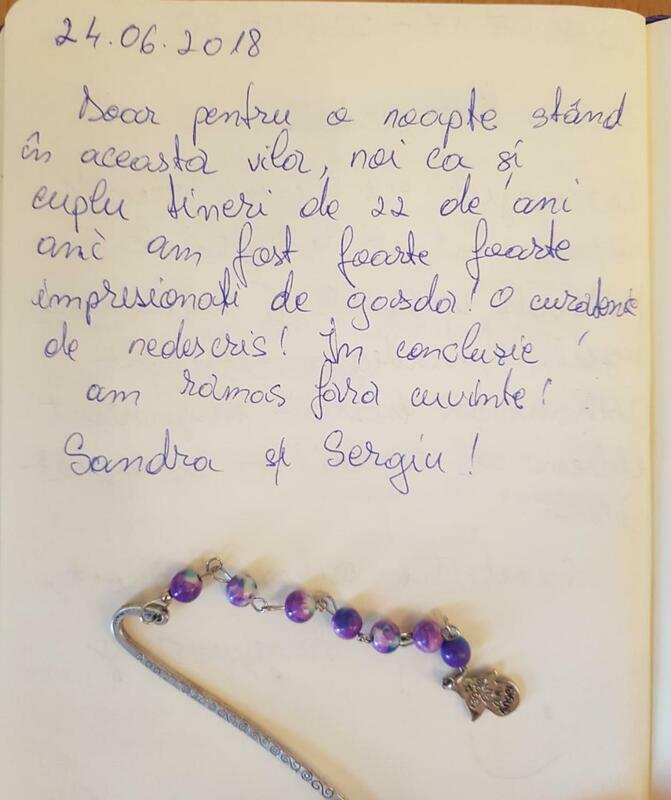 24.06.2018
Doar pentru o noapte stând
în aceasta vila, noi ca și
cuplu tineri de 22 de ani
ani am fost foarte foarte
impresionați de gasda! O curatenie
de nedescris! În concluzie
am ramas fara cuvinte!
Sandra și Sergiu!